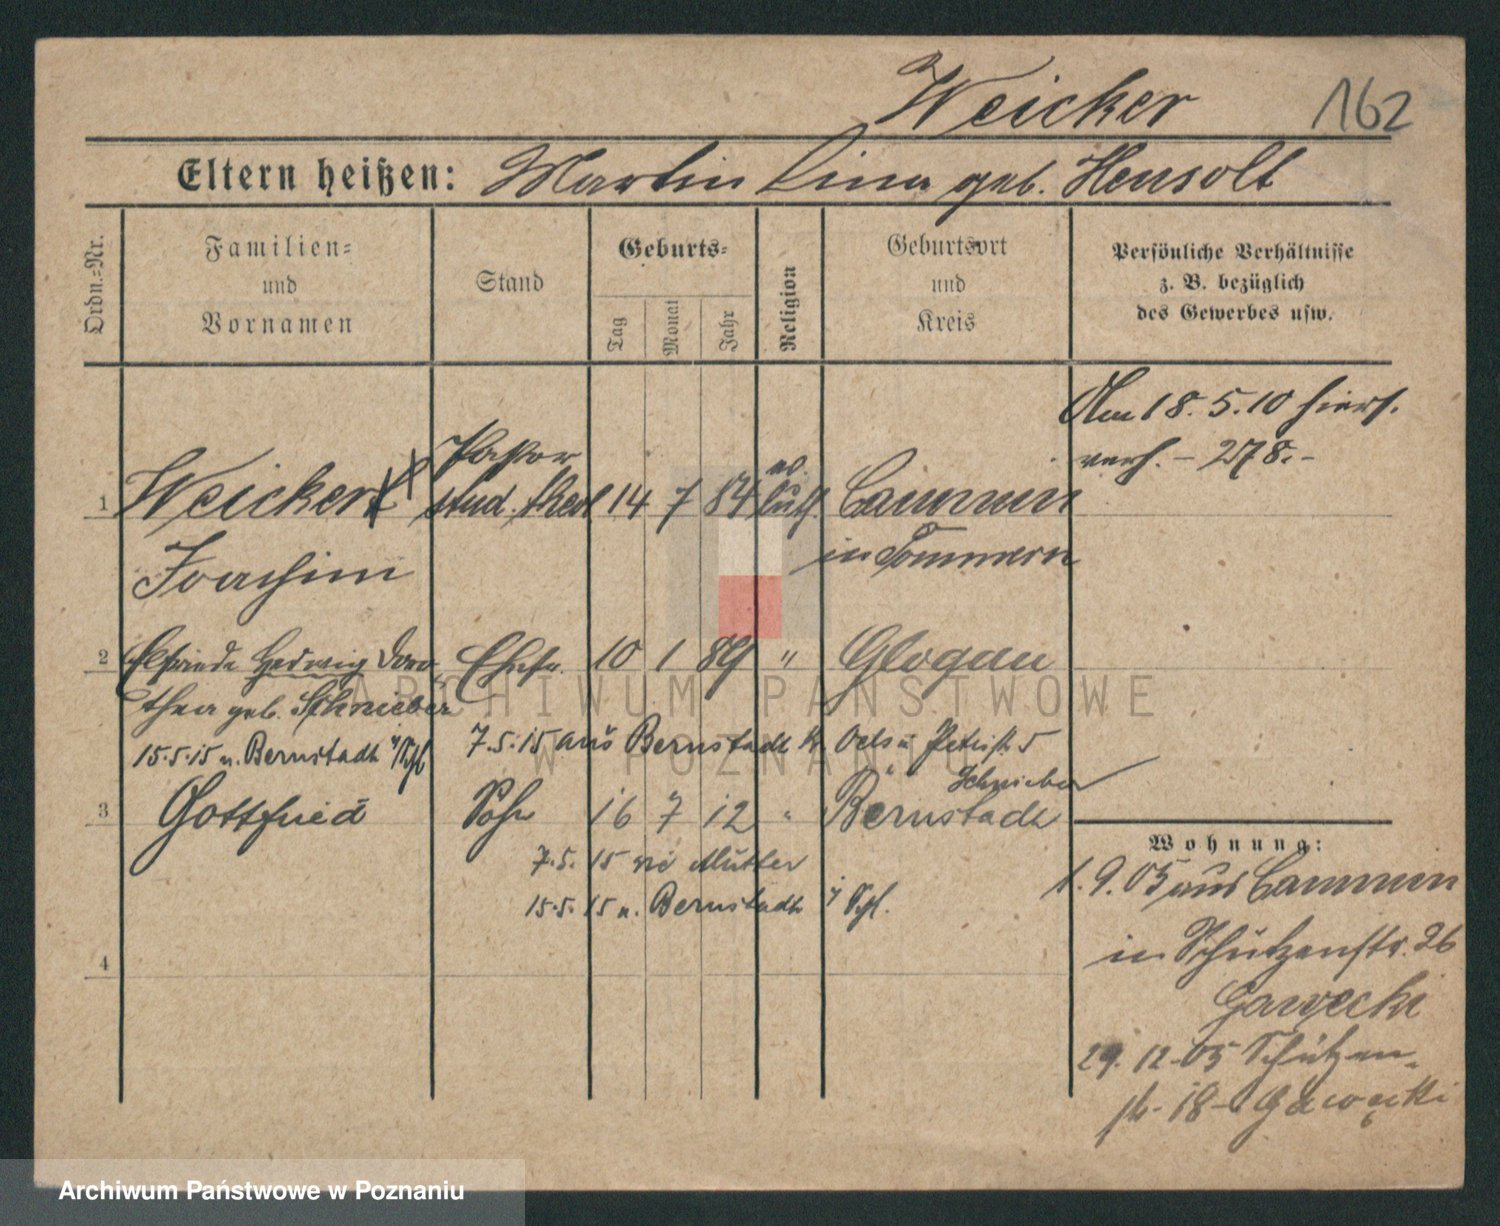 Weicker 162
Eltern heißen: Martin Lina geb. Hensolt
Ordn.-Nr.
Familien-
und
Vornamen
Stand
Geburts-
Tag
Monat
Jahr
Religion
Geburtsort
und
Kreis
Persönliche Verhältnisse
z. B. bezüglich
des Gewerbes usw.
Am 18.5.10 hiers.
verh. - 278.-
Pastor
ev.
1 Weicker stud. theol 14 7 84 luth. Cammin
Joachim
in Pommern
2 Elfriede Hedwig Doro- Ehefr. 10 1 89 " Glogau
thea geb. Schrieber
7.5.15 aus Bernstadt Kr. Oels n. Petristr. 5
15.5.15 n. Bernstadt i/Schl
Schrieber
3 Gottfried Sohn 16 7 12 " Bernstadt
7.5.15 wie Mutter
15.5.15 n. Bernstadt i/ Schl.
4
Wohnung:
1.9.05 aus Cammin
in Schützenstr. 26
Gawecki
29.12.05 Schützen-
str. 18 - Gawęcki
ARCHIWUM PAŃSTWOWE
W POZNANIU
Archiwum Państwowe w Poznaniu